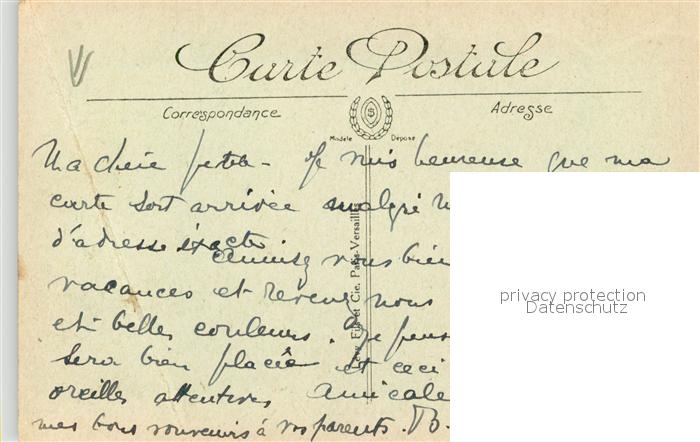 Carte Postale
Correspondance
Adresse
Modèle Déposé
Ma chère petite - Je suis heureuse que ma
carte soit arrivée malgré
d'adresse exacte
Amusez vous bien
vacances et revenez nous
et belles couleurs. Je
sera bien placée et ceci
oreilles attentives Amicale
mes bons souvenirs à vos parents. B.
Levy Fils et Cie, Paris-Versailles
privacy protection
Datenschutz